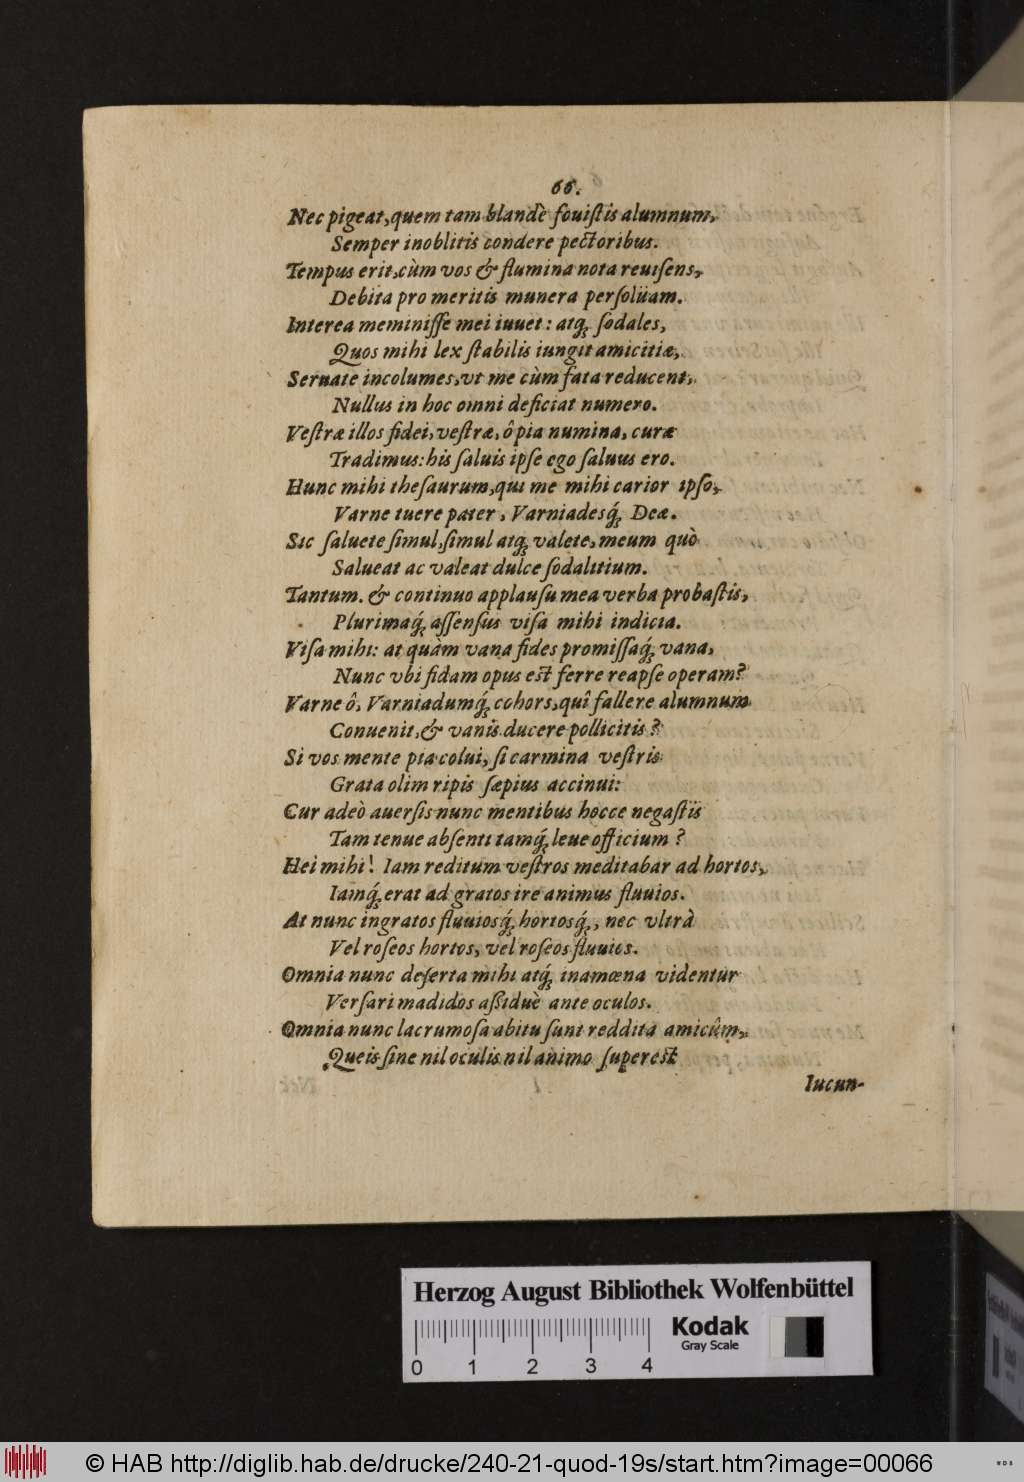 66.
Nec pigeat, quem tam blandè fouiſtis alumnum,
Semper inoblitis condere pectoribus.
Tempus erit, cùm vos & flumina nota reuiſens,
Debita pro meritis munera perſolüam.
Interea meminiſſe mei iuuet: atq; ſodales,
Quos mihi lex ſtabilis iungit amicitiæ,
Seruate incolumes, vt me cùm fata reducent,
Nullus in hoc omni deficiat numero.
Veſtræ illos fidei, veſtræ, ô pia numina, curæ
Tradimus: his ſaluis ipſe ego ſaluus ero.
Hunc mihi theſaurum, qui me mihi carior ipſo,
Varne tuere pater, Varniadesq́; Deæ.
Sic ſaluete ſimul, ſimul atq; valete, meum quò
Salueat ac valeat dulce ſodalitium.
Tantum. & continuo applauſu mea verba probaſtis,
Plurimaq́; aſſenſus viſa mihi indicia.
Viſa mihi: at quàm vana fides promiſſaq́; vana,
Nunc vbi fidam opus est ferre reapſe operam?
Varne ô, Varniadumq́; cohors, quî fallere alumnum
Conuenit, & vanis ducere pollicitis?
Si vos mente pia colui, ſi carmina veſtris
Grata olim ripis ſæpius accinui:
Cur adeò auerſis nunc mentibus hocce negaſtis
Tam tenue abſenti tamq́; leue officium?
Hei mihi! Iam reditum veſtros meditabar ad hortos,
Iamq́; erat ad gratos ire animus fluuios.
At nunc ingratos fluuiosq́; hortosq́;, nec vltrà
Vel roſeos hortos, vel roſeos fluuios.
Omnia nunc deſerta mihi atq́; inamœna videntur
Verſari madidos aſſiduè ante oculos.
Omnia nunc lacrumoſa abitu ſunt reddita amicûm,
Queis ſine nil oculis nil animo ſuperest
Iucun-
Herzog August Bibliothek Wolfenbüttel
Kodak
Gray Scale
0 1 2 3 4
© HAB http://diglib.hab.de/drucke/240-21-quod-19s/start.htm?image=00066